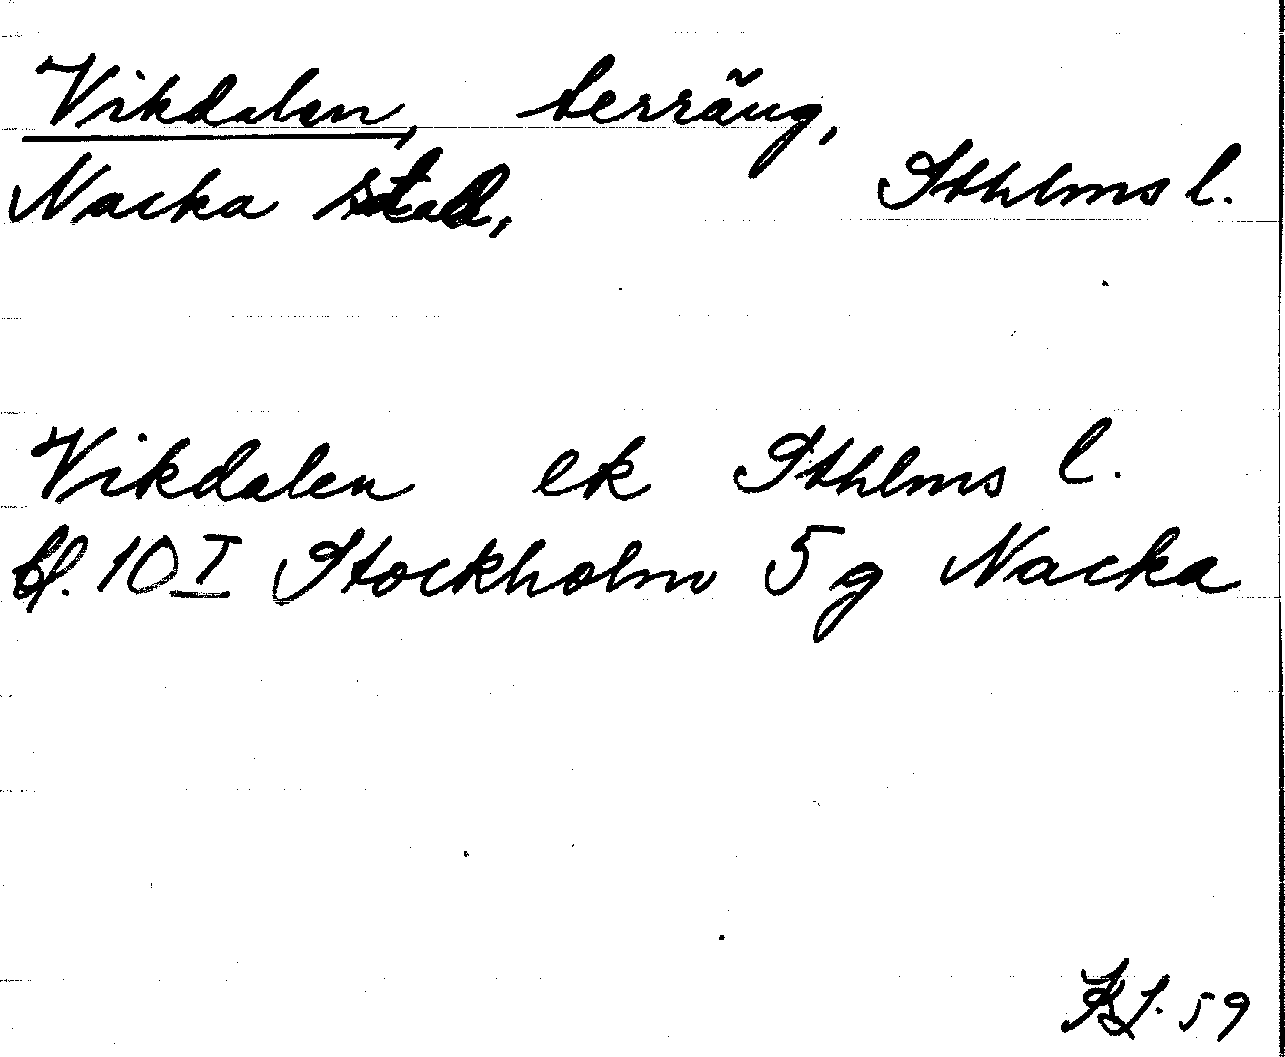 Vikdalen, terräng,
Nacka stad, Sthlms l.
Vikdalen ek Sthlms l.
bl. 10 I Stockholm 5 g Nacka
59